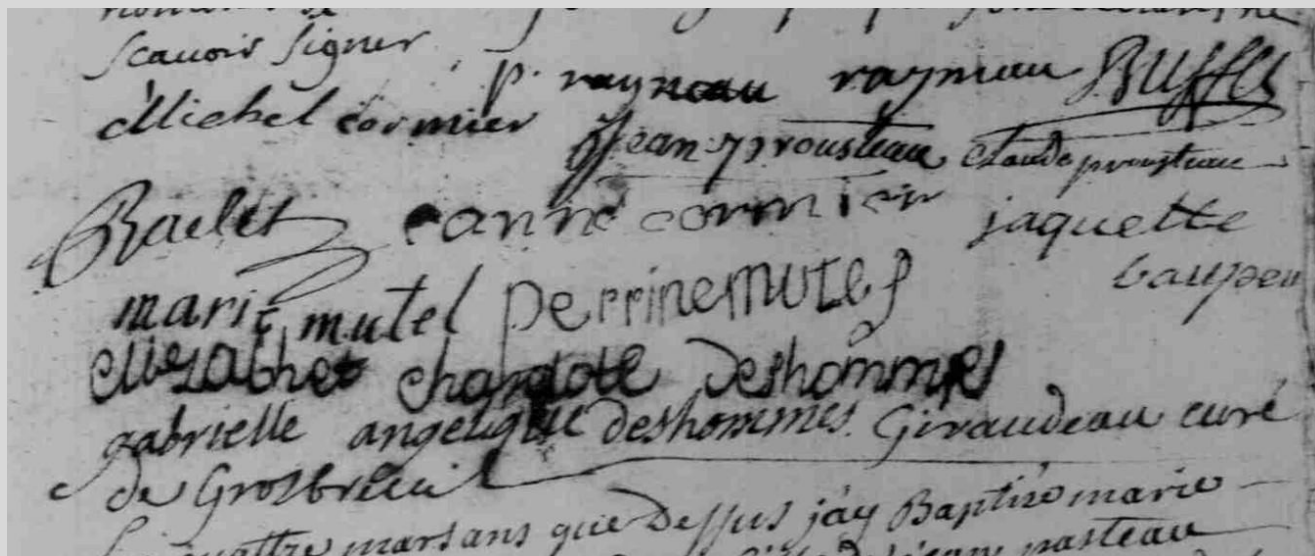 scavoir signer. p. rayneau raynau Buffet
Michel cormier Jean prousteau Claude prousteau
Baelet eanne cormier jaquette
marie mutel perrine mutel baupeu
elizabhet charlote deshommes
gabrielle angelique deshommes. Giraudeau curé
de Grosbreuil
quattre mars ans que Dessus j'ay Baptisé marie
pasteau